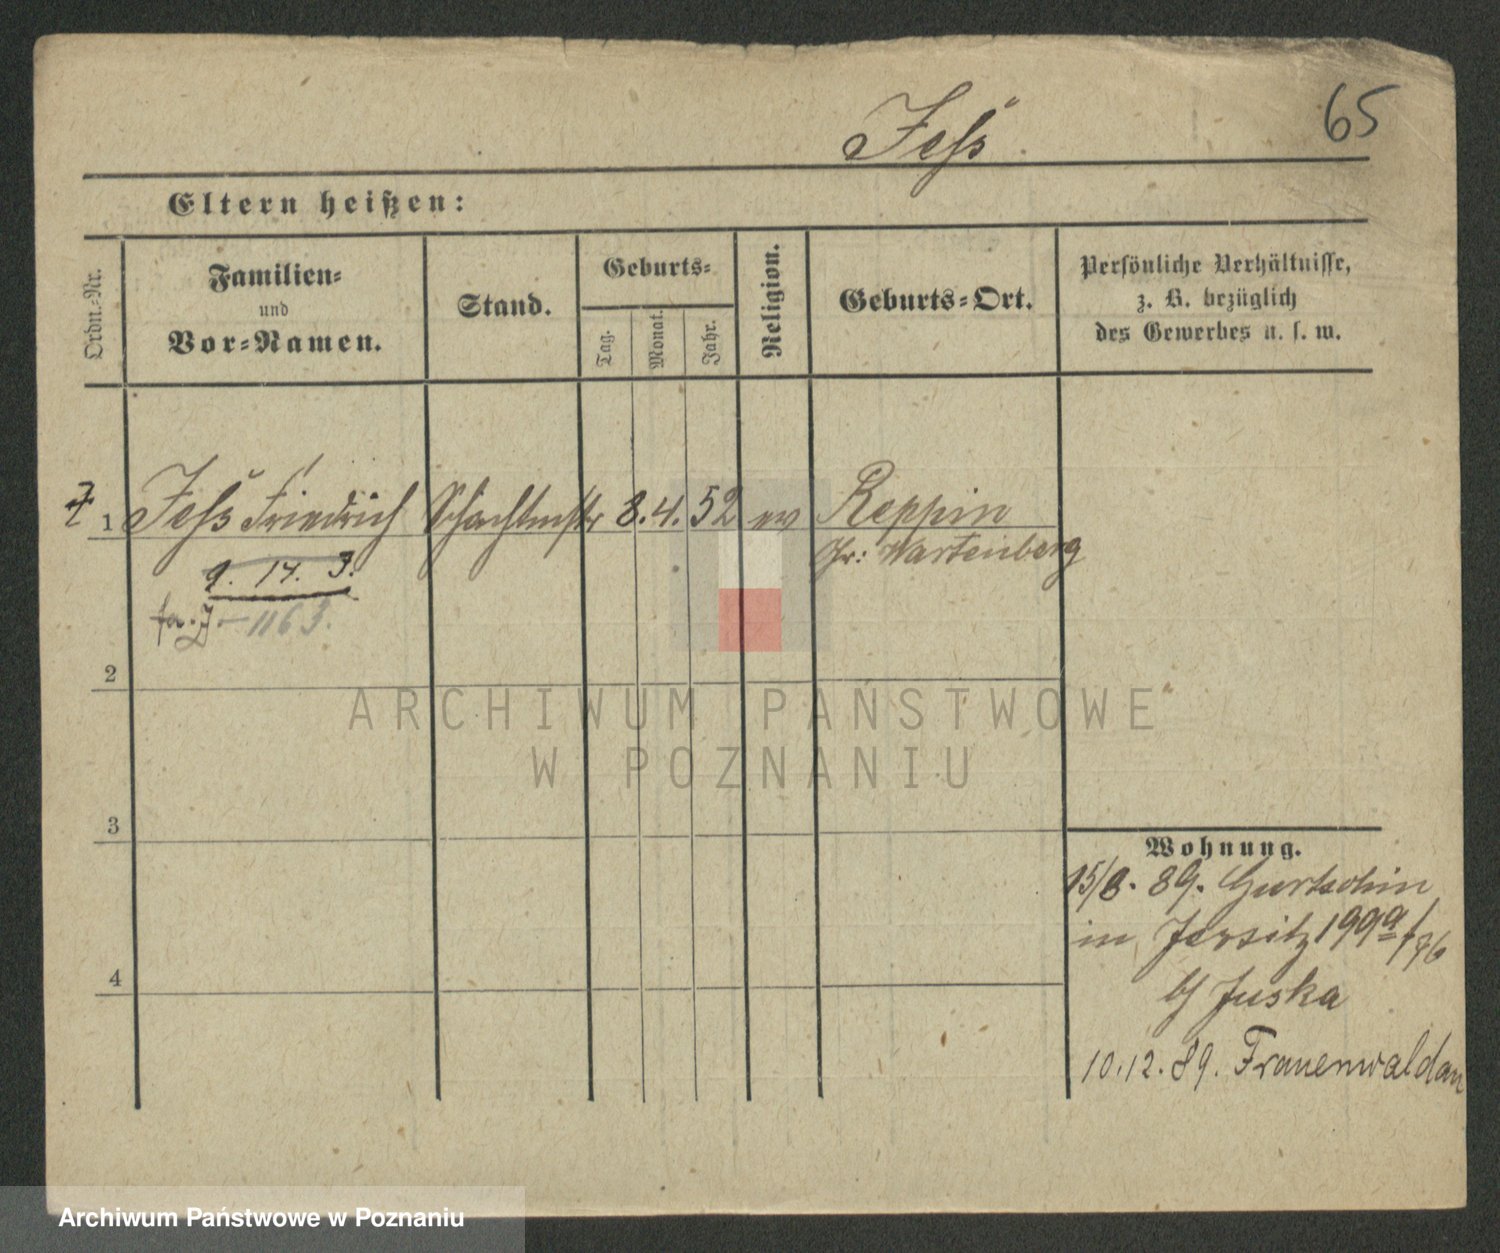 65
Jess
Eltern heißen:
Ordn.-Nr.
Familien-
und
Vor-Namen.
Stand.
Geburts-
Tag.
Monat.
Jahr.
Religion.
Geburts-Ort.
Persönliche Verhältnisse,
z. B. bezüglich
des Gewerbes u. s. w.
1 Jess Friedrich Schachtmstr 8. 4. 52 ev Reppin
Gr: Wartenberg
9. 14. 3.
1163.
2
ARCHIWUM PAŃSTWOWE
W POZNANIU
3
4
Wohnung.
15/8. 89. Gurtschin
in Jersitz 199a/76
b/ Juska
10.12.89. Frauenwaldau
Archiwum Państwowe w Poznaniu